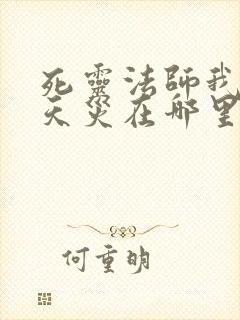 死靈法師我
天災在哪里
何重明